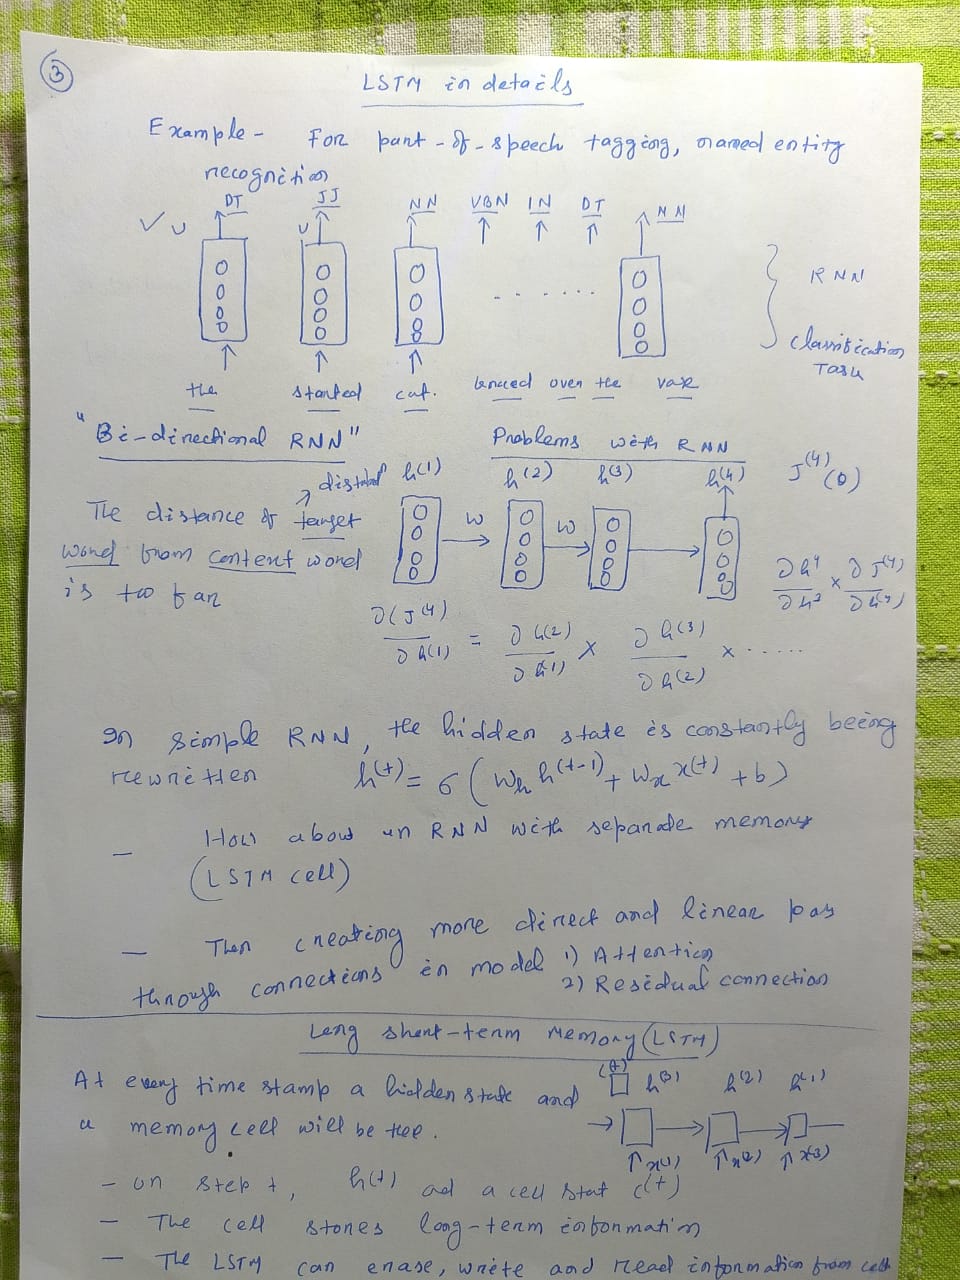 3
LSTM in details
Example - For part-of-speech tagging, named entity
recognition
DT JJ NN VBN IN DT NN
RNN
Classification
Task
the started cat. knocked over the vase
"Bi-directional RNN"
Problems with RNN
h(1) h(2) h(3) h(4) J(4)(θ)
The distance of target
word from content word
is too far
W W
∂h4/∂h3 × ∂J(4)/∂h(4)
∂(J(4)/∂h(1) = ∂h(2)/∂h(1) × ∂h(3)/∂h(2) × .....
In simple RNN, the hidden state is constantly being
rewritten h(t) = σ(Wh h(t-1) + Wx x(t) + b)
- How about an RNN with separate memory
(LSTM cell)
- Then creating more direct and linear pass
through connections in model 1) Attention
2) Residual connection
Long short-term Memory (LSTM)
At every time stamp a hidden state and
a memory cell will be there.
(t) h(3) h(2) h(1)
x(1) x(2) x(3)
- on step t, h(t) ad a cell stat c(t)
- The cell stores long-term information
- The LSTM can erase, write and read information from cell